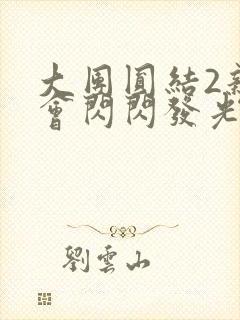 大團圓結2新
會閃閃發光
劉雲山